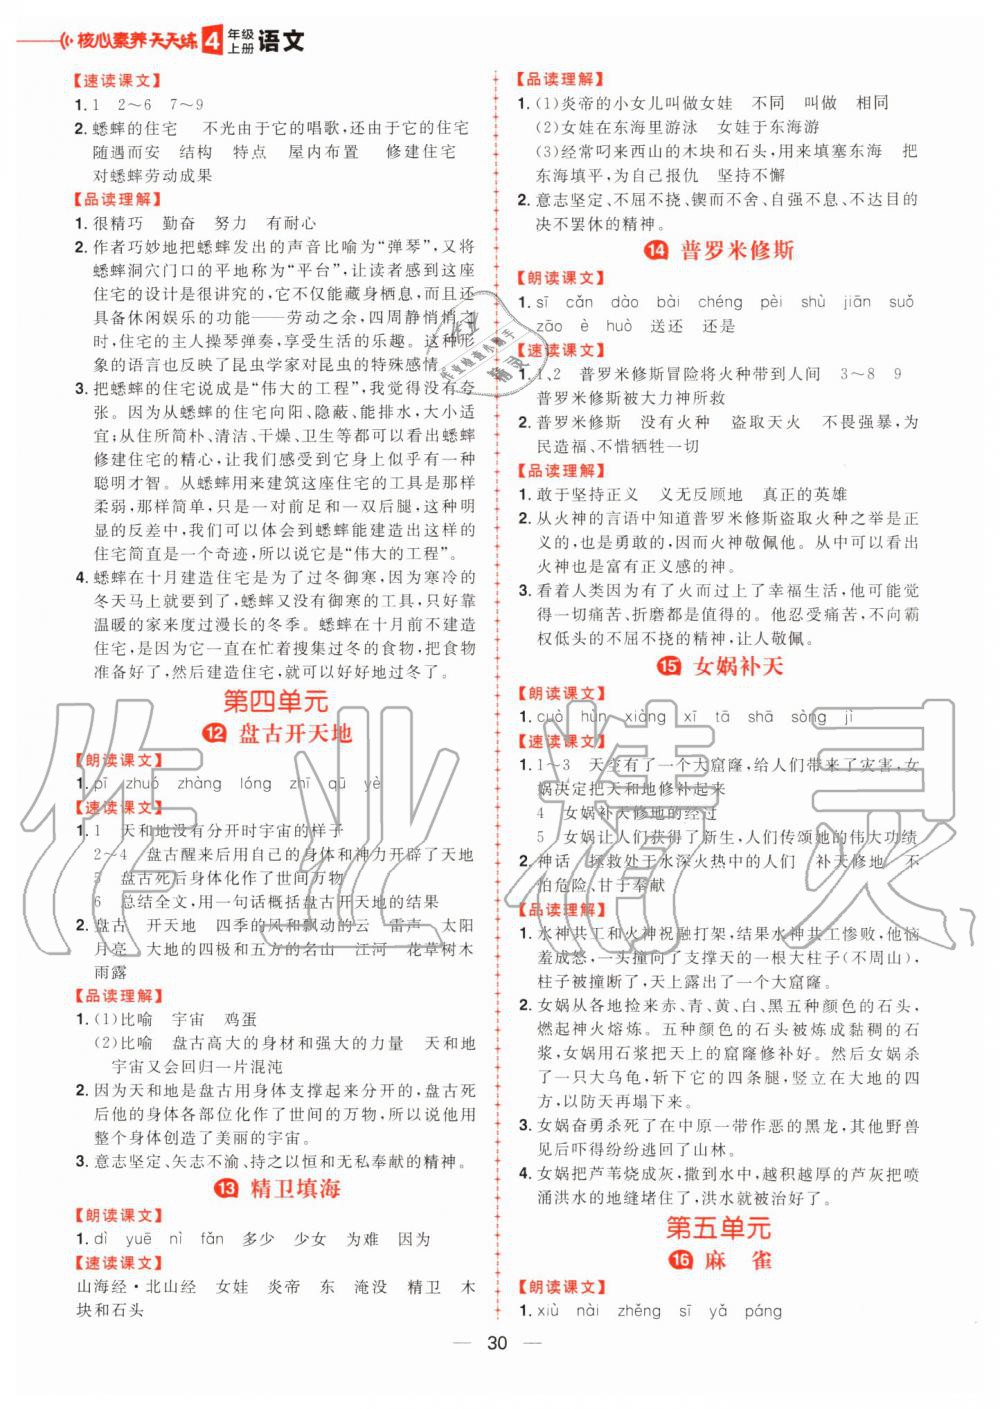 核心素养天天练 4 年级上册 语文
【速读课文】
1. 1　2～6　7～9
2. 蟋蟀的住宅　不光由于它的唱歌,还由于它的住宅
随遇而安　结构　特点　屋内布置　修建住宅
对蟋蟀劳动成果
【品读理解】
1. 很精巧　勤奋　努力　有耐心
2. 作者巧妙地把蟋蟀发出的声音比喻为“弹琴”,又将
蟋蟀洞穴门口的平地称为“平台”,让读者感到这座
住宅的设计是很讲究的,它不仅能藏身栖息,而且还
具备休闲娱乐的功能——劳动之余,四周静悄悄之
时,住宅的主人操琴弹奏,享受生活的乐趣。这种形
象的语言也反映了昆虫学家对昆虫的特殊感情。
3. 把蟋蟀的住宅说成是“伟大的工程”,我觉得没有夸
张。因为从蟋蟀的住宅向阳、隐蔽、能排水,大小适
宜;从住所简朴、清洁、干燥、卫生等都可以看出蟋蟀
修建住宅的精心,让我们感受到它有一种
聪明才智。从蟋蟀用来建筑这座住宅的工具是那样
柔弱,那样简单,只有一对前足和一双后腿,这种明
显的反差中,我们可以体会到蟋蟀能建造出这样的
住宅简直是一个奇迹,所以说它是“伟大的工程”。
4. 蟋蟀在十月建造住宅是为了过冬御寒,因为寒冷的
冬天马上就要到了,蟋蟀没有御寒的工具,只有靠
温暖的家来度过漫长的冬季。蟋蟀在十月前不建造
住宅,是因为它一直在忙着搜集过冬的食物,把食物
准备好了,然后建造住宅,就可以好好地过冬了。
第四单元
12 盘古开天地
【朗读课文】
1. pī　zhuó　zhàng　lóng　zhī　qū　yè
【速读课文】
1. 1　天和地没有分开时宇宙的样子
2～4　盘古醒来后用自己的身体和神力开辟了天地
5　盘古死后身体化作了世间万物
6　总结全文,用一句话概括盘古开天地的结果
2. 盘古　开天地　四季的风和飘动的云　雷声　太阳
月亮　大地的四极和五方的名山　江河　花草树木
雨露
【品读理解】
1. (1)比喻　宇宙　鸡蛋
(2)比喻　盘古高大的身材和强大的力量　天和地
宇宙又会回归一片混沌
2. 因为天和地是盘古用身体支撑起来分开的,盘古死
后他的身体各部位化作了世间的万物,所以说他用
整个身体创造了美丽的宇宙。
3. 意志坚定、矢志不渝、持之以恒和无私奉献的精神。
13 精卫填海
【朗读课文】
1. dì　yuē　nì　fǎn　多少　少女　为难　因为
【速读课文】
山海经·北山经　女娃　炎帝　东　淹没　精卫　木
块和石头
【品读理解】
1. (1)炎帝的小女儿叫做女娃　不同　叫做　相同
(2)女娃在东海里游泳　女娃于东海游
(3)经常叼来西山的木块和石头,用来填塞东海　把
东海填平,为自己报仇　坚持不懈
2. 意志坚定、不屈不挠、锲而不舍、自强不息、不达目的
决不罢休的精神。
14 普罗米修斯
【朗读课文】
1. sī　cǎn　dào　bài　chéng　pèi　shù　jiān　suǒ
zāo　è　huò　送还　还是
【速读课文】
1. 1、2　普罗米修斯冒险将火种带到人间　3～8　9
普罗米修斯被大力神所救
2. 普罗米修斯　没有火种　盗取天火　不畏强暴,为
民造福、不惜牺牲一切
【品读理解】
1. 敢于坚持正义　义无反顾地　真正的英雄
2. 从火神的言语中知道普罗米修斯盗取火种之举是正
义的,也是勇敢的,因而火神敬佩他。从中可以看出
火神也是富有正义感的神。
3. 看着人类因为有了火而过上了幸福生活,他可能觉
得一切痛苦、折磨都是值得的。他忍受痛苦,不向霸
权低头的不屈不挠的精神,让人敬佩。
15 女娲补天
【朗读课文】
1. cuò　hùn　xiàng　xī　tā　shā　sòng　jì
【速读课文】
1. 1～3　天空有了一个大窟窿,给人们带来了灾害,女
娲决定把天和地修补起来
4　女娲补天修地的经过
5　女娲让人们获得了新生,人们传颂她的伟大功绩
2. 神话　拯救处于水深火热中的人们　补天修地　不
怕危险、甘于奉献
【品读理解】
1. 水神共工和火神祝融打架,结果水神共工惨败,他恼
羞成怒,一头撞向了支撑天的一根大柱子(不周山),
柱子被撞断了,天上露出了一个大窟窿。
2. 女娲从各地捡来赤、青、黄、白、黑五种颜色的石头,
燃起神火熔炼。五种颜色的石头被炼成黏稠的石
浆,女娲用石浆把天上的窟窿修补好。然后女娲杀
了一只大乌龟,斩下它的四条腿,竖立在大地的四
方,以防天再塌下来。
3. 女娲奋勇杀死了在中原一带作恶的黑龙,其他野兽
见后吓得纷纷逃回了山林。
4. 女娲把芦苇烧成灰,撒到水中,越积越厚的芦灰把喷
涌洪水的地缝堵住了,洪水就被治好了。
第五单元
16 麻　雀
【朗读课文】
1. xiù　nài　zhěng　sī　yǎ　páng
30
作业精灵